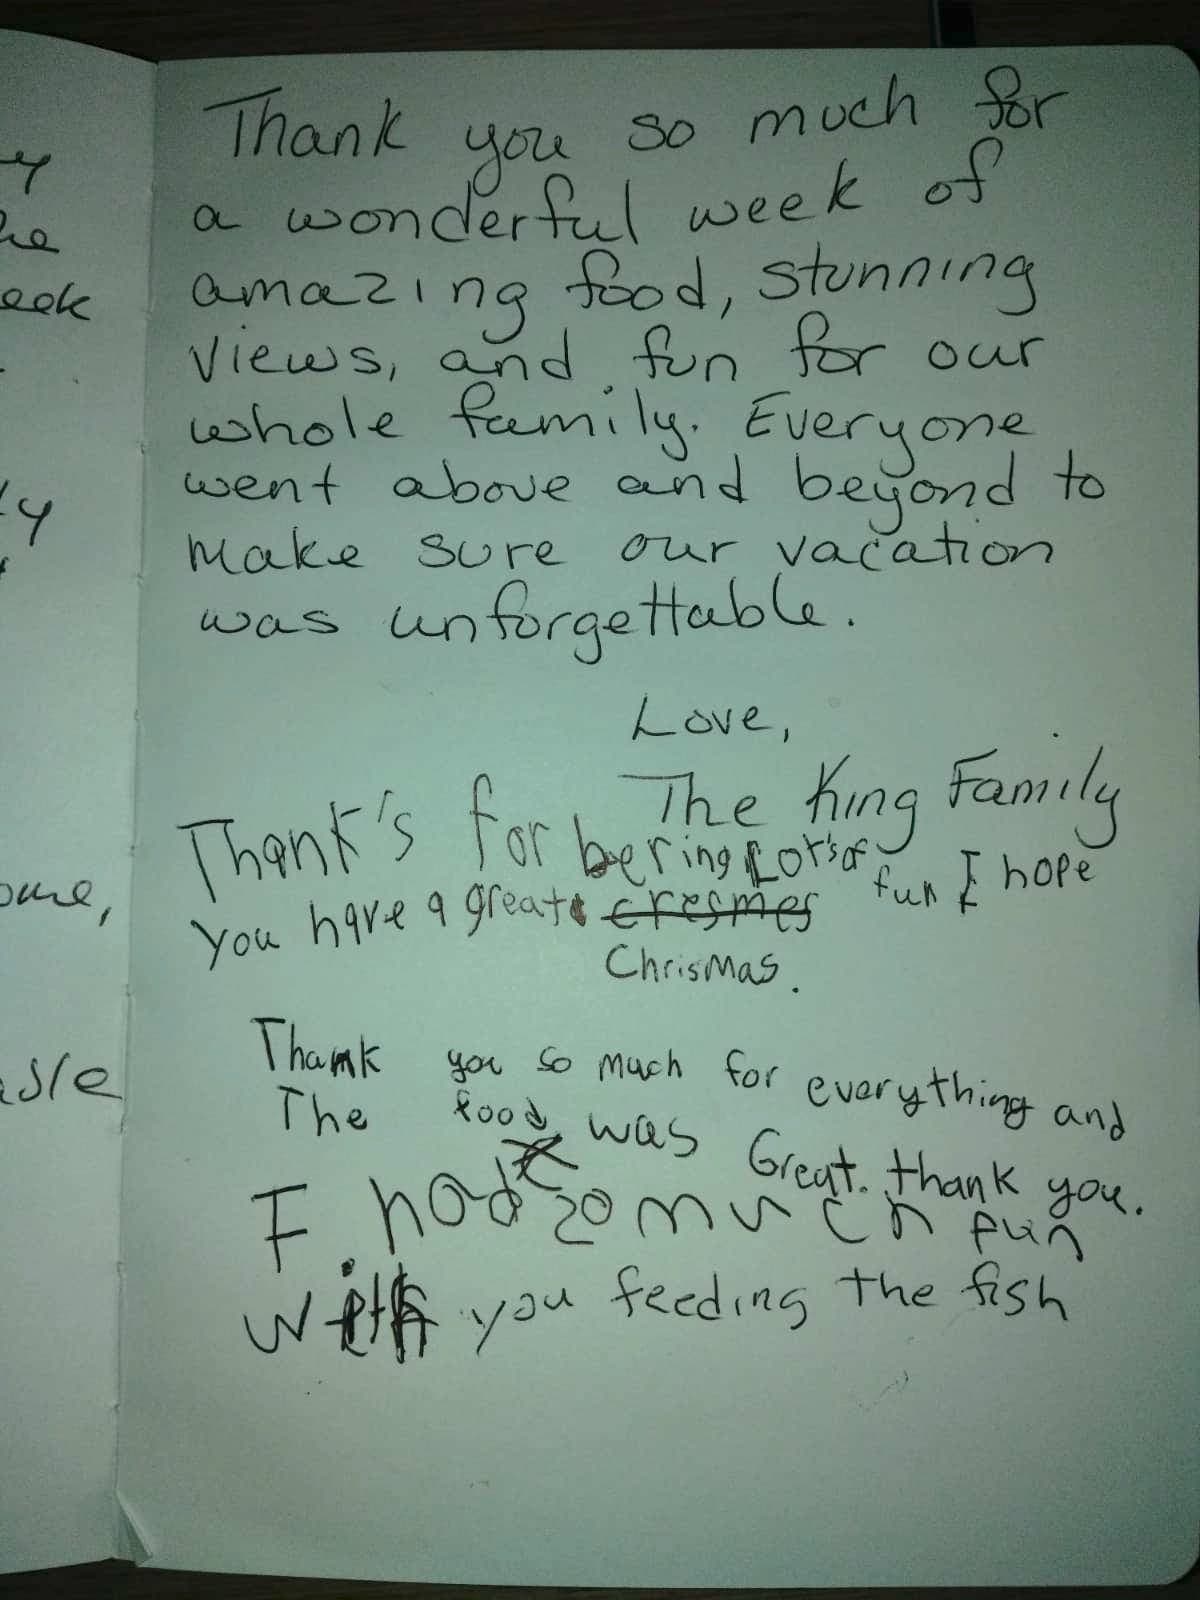 Thank you so much for
a wonderful week of
amazing food, stunning
views, and fun for our
whole family. Everyone
went above and beyond to
make sure our vacation
was unforgettable.
Love,
The King Family
Thank's for bering Lots of fun I hope
you have a great cresmes
Chrismas.
Thank you so much for everything and
The food was Great. thank you.
I had so much fun
with you feeding the fish
eek
ome,